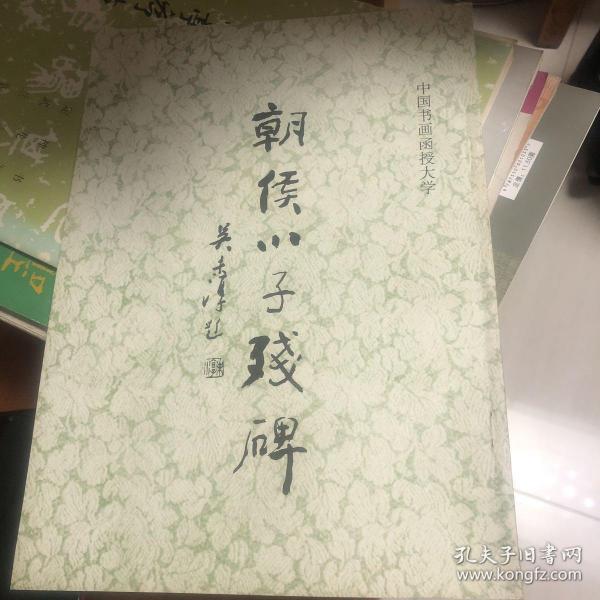 中国书画函授大学
朝侯小子残碑
吴未淳题
孔夫子旧书网
www.kongfz.com